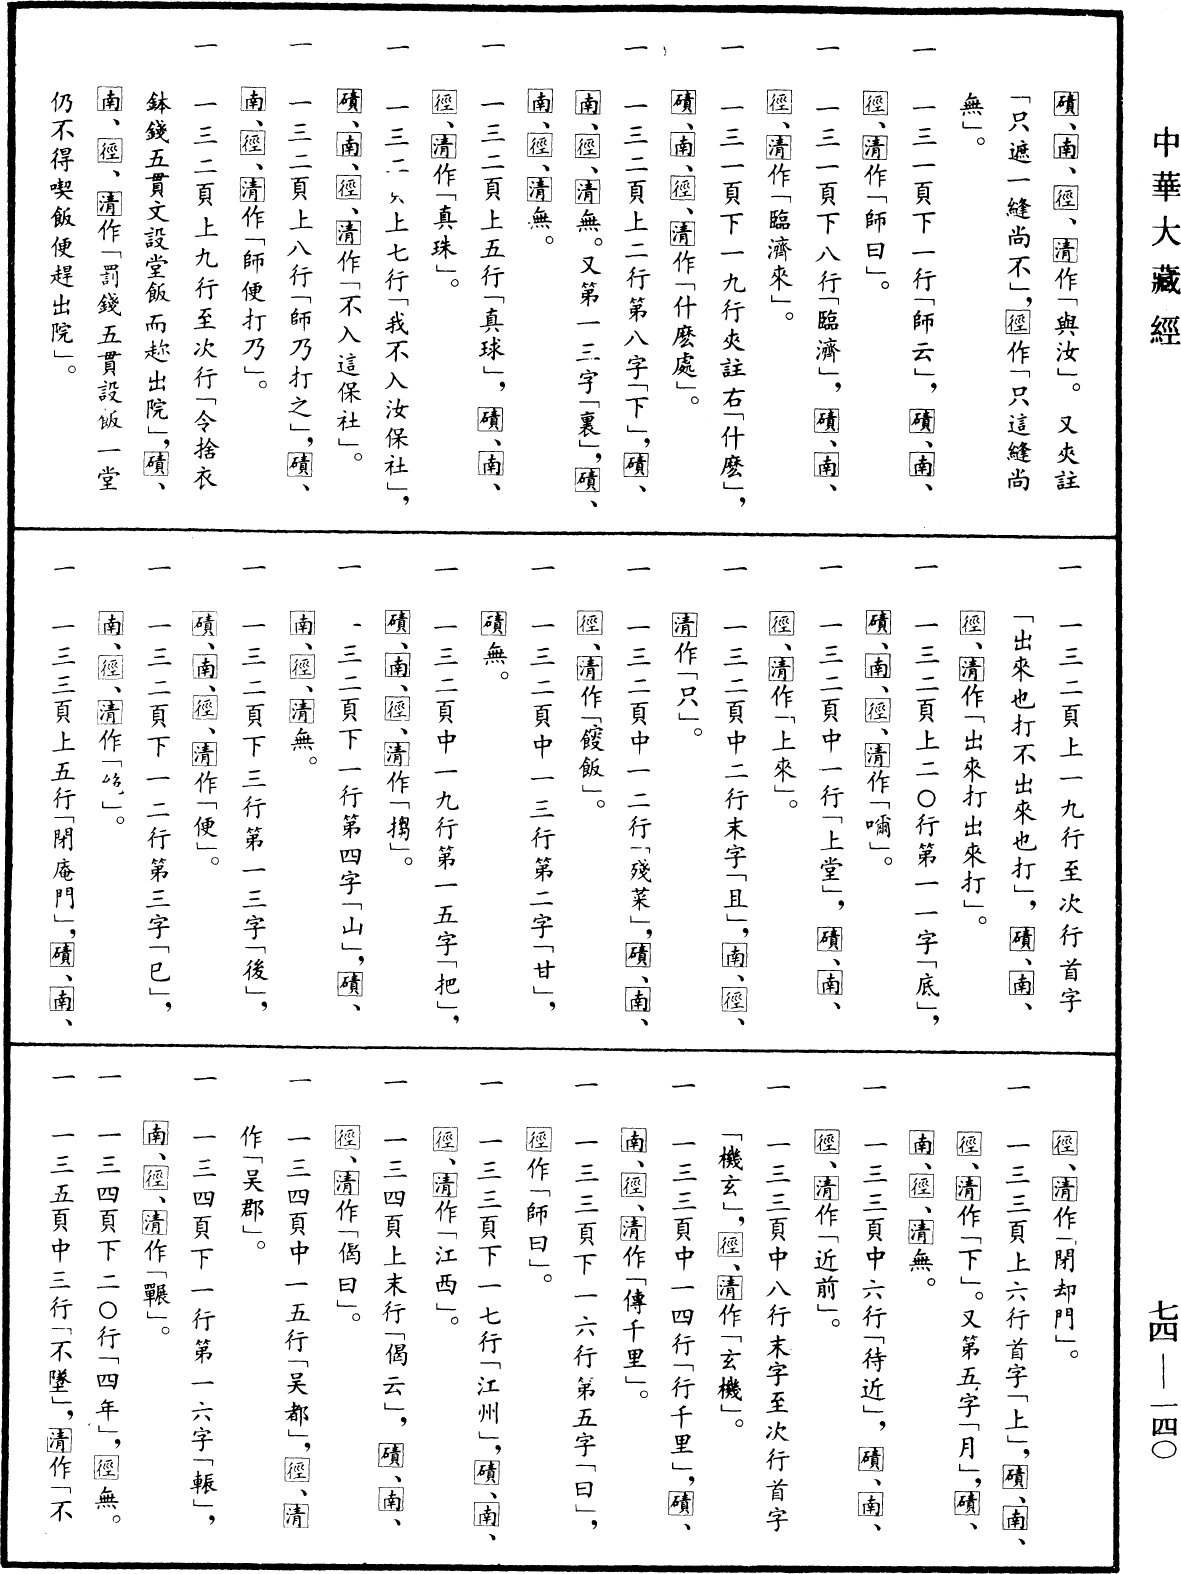 中華大藏經
磧、南、徑、清作「與汝」。又夾註
「只遮一縫尚不」，徑作「只這縫尚
無」。
一　一三一頁下一行「師云」，磧、南、
徑、清作「師曰」。
一　一三一頁下八行「臨濟」，磧、南、
徑、清作「臨濟來」。
一　一三一頁下一九行夾註右「什麽」，
磧、南、徑、清作「什麽處」。
一　一三二頁上二行第八字「下」，磧、
南、徑、清無。又第一三字「裏」，磧、
南、徑、清無。
一　一三二頁上五行「真球」，磧、南、
徑、清作「真珠」。
一　一三二上七行「我不入汝保社」，
磧、南、徑、清作「不入這保社」。
一　一三二頁上八行「師乃打之」，磧、
南、徑、清作「師便打乃」。
一　一三二頁上九行至次行「令捨衣
鉢錢五貫文設堂飯而趂出院」，磧、
南、徑、清作「罰錢五貫設飯一堂
仍不得喫飯便趕出院」。
一　一三二頁上一九行至次行首字
「出來也打不出來也打」，磧、南、
徑、清作「出來打出來打」。
一　一三二頁上二〇行第一一字「底」，
磧、南、徑、清作「嘀」。
一　一三二頁中一行「上堂」，磧、南、
徑、清作「上來」。
一　一三二頁中二行末字「且」，南、徑、
清作「只」。
一　一三二頁中一二行「殘菜」，磧、南、
徑、清作「餿飯」。
一　一三二頁中一三行第二字「甘」，
磧無。
一　一三二頁中一九行第一五字「把」，
磧、南、徑、清作「搊」。
一　一三二頁下一行第四字「山」，磧、
南、徑、清無。
一　一三二頁下三行第一三字「後」，
磧、南、徑、清作「便」。
一　一三二頁下一二行第三字「巳」，
南、徑、清作「」。
一　一三三頁上五行「閉庵門」，磧、南、
徑、清作「閉却門」。
一　一三三頁上六行首字「上」，磧、南、
徑、清作「下」。又第五字「月」，磧、
南、徑、清無。
一　一三三頁中六行「待近」，磧、南、
徑、清作「近前」。
一　一三三頁中八行末字至次行首字
「機玄」，徑、清作「玄機」。
一　一三三頁中一四行「行千里」，磧、
南、徑、清作「傳千里」。
一　一三三頁下一六行第五字「曰」，
徑作「師曰」。
一　一三三頁下一七行「江州」，磧、南、
徑、清作「江西」。
一　一三四頁上末行「偈云」，磧、南、
徑、清作「偈曰」。
一　一三四頁中一五行「吴都」，徑、清
作「吴郡」。
一　一三四頁下一行第一六字「輾」，
南、徑、清作「驏」。
一　一三四頁下二〇行「四年」，徑無。
一　一三五頁中三行「不墜」，清作「不
七四—一四〇